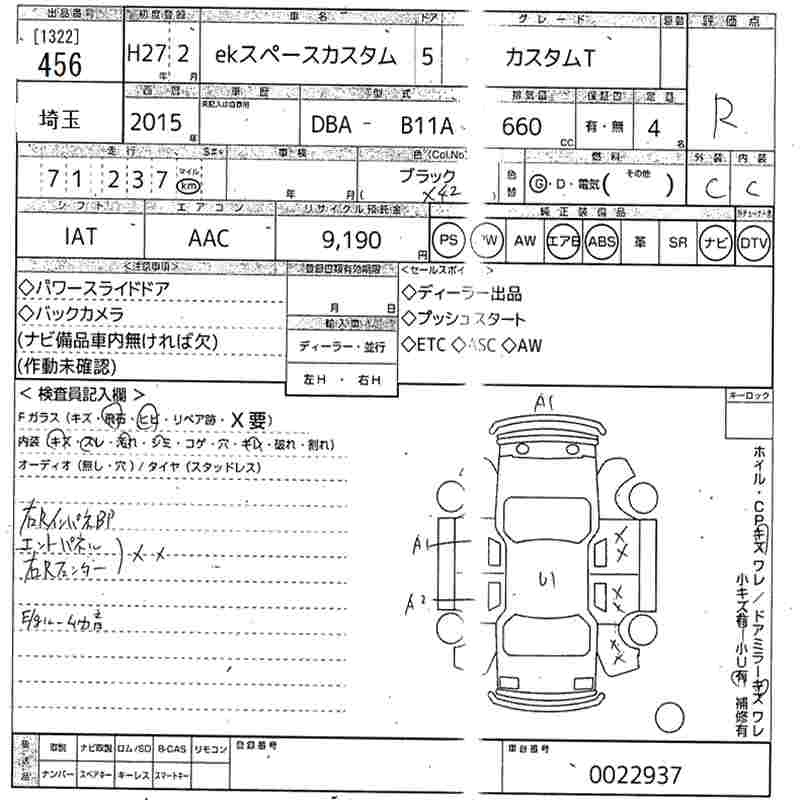 出品番号 初度登録 車名 ドア グレード 評価点
[1322]
456 H27年 2月 ekスペースカスタム 5 カスタムT R
西暦 車歴 型式 排気量 定員
埼玉 2015年 DBA - B11A 660cc 有・無 4名
走行 車検 色(Col.No 色替 燃料 外装 内装
71,237 マイル km 年 月 ブラック (X42) G・D・電気( その他 ) C C
シフト エアコン リサイクル預託金 純正装備品
IAT AAC 9,190円 PS PW AW エアB ABS 革 SR ナビ DTV
<注意事項> 登録書類有効期限 <セールスポイント>
◇パワースライドドア 月 日 ◇ディーラー出品
◇バックカメラ 輸入車 ◇プッシュスタート
(ナビ備品車内無ければ欠) ディーラー・並行 ◇ETC ◇ASC ◇AW
(作動未確認) 左H・右H
<検査員記入欄> キーロック
Fガラス(キズ・飛石・ヒビ・リペア跡・X要)
内装(キズ・スレ・汚れ・シミ・コゲ・穴・キレ・破れ・割れ)
オーディオ(無し・穴)/タイヤ(スタッドレス)
右Rインパネ部
エンドパネル
右Rフェンダー
) X X
E/gルーム内音
A1
A1
A2
U1
X X
X X
X X
ホイル・CPキズワレ/ドアミラーキズワレ
小キズ有 小U有 補修有
返送品 取説 ナビ取説 ロム/SD B-CAS リモコン 登録番号 車台番号
ナンバー スペアキー キーレス スマートキー 0022937